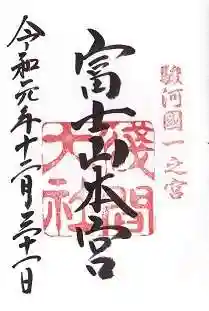 駿河國一之宮
富士山本宮
淺間大社
令和元年十二月三十一日